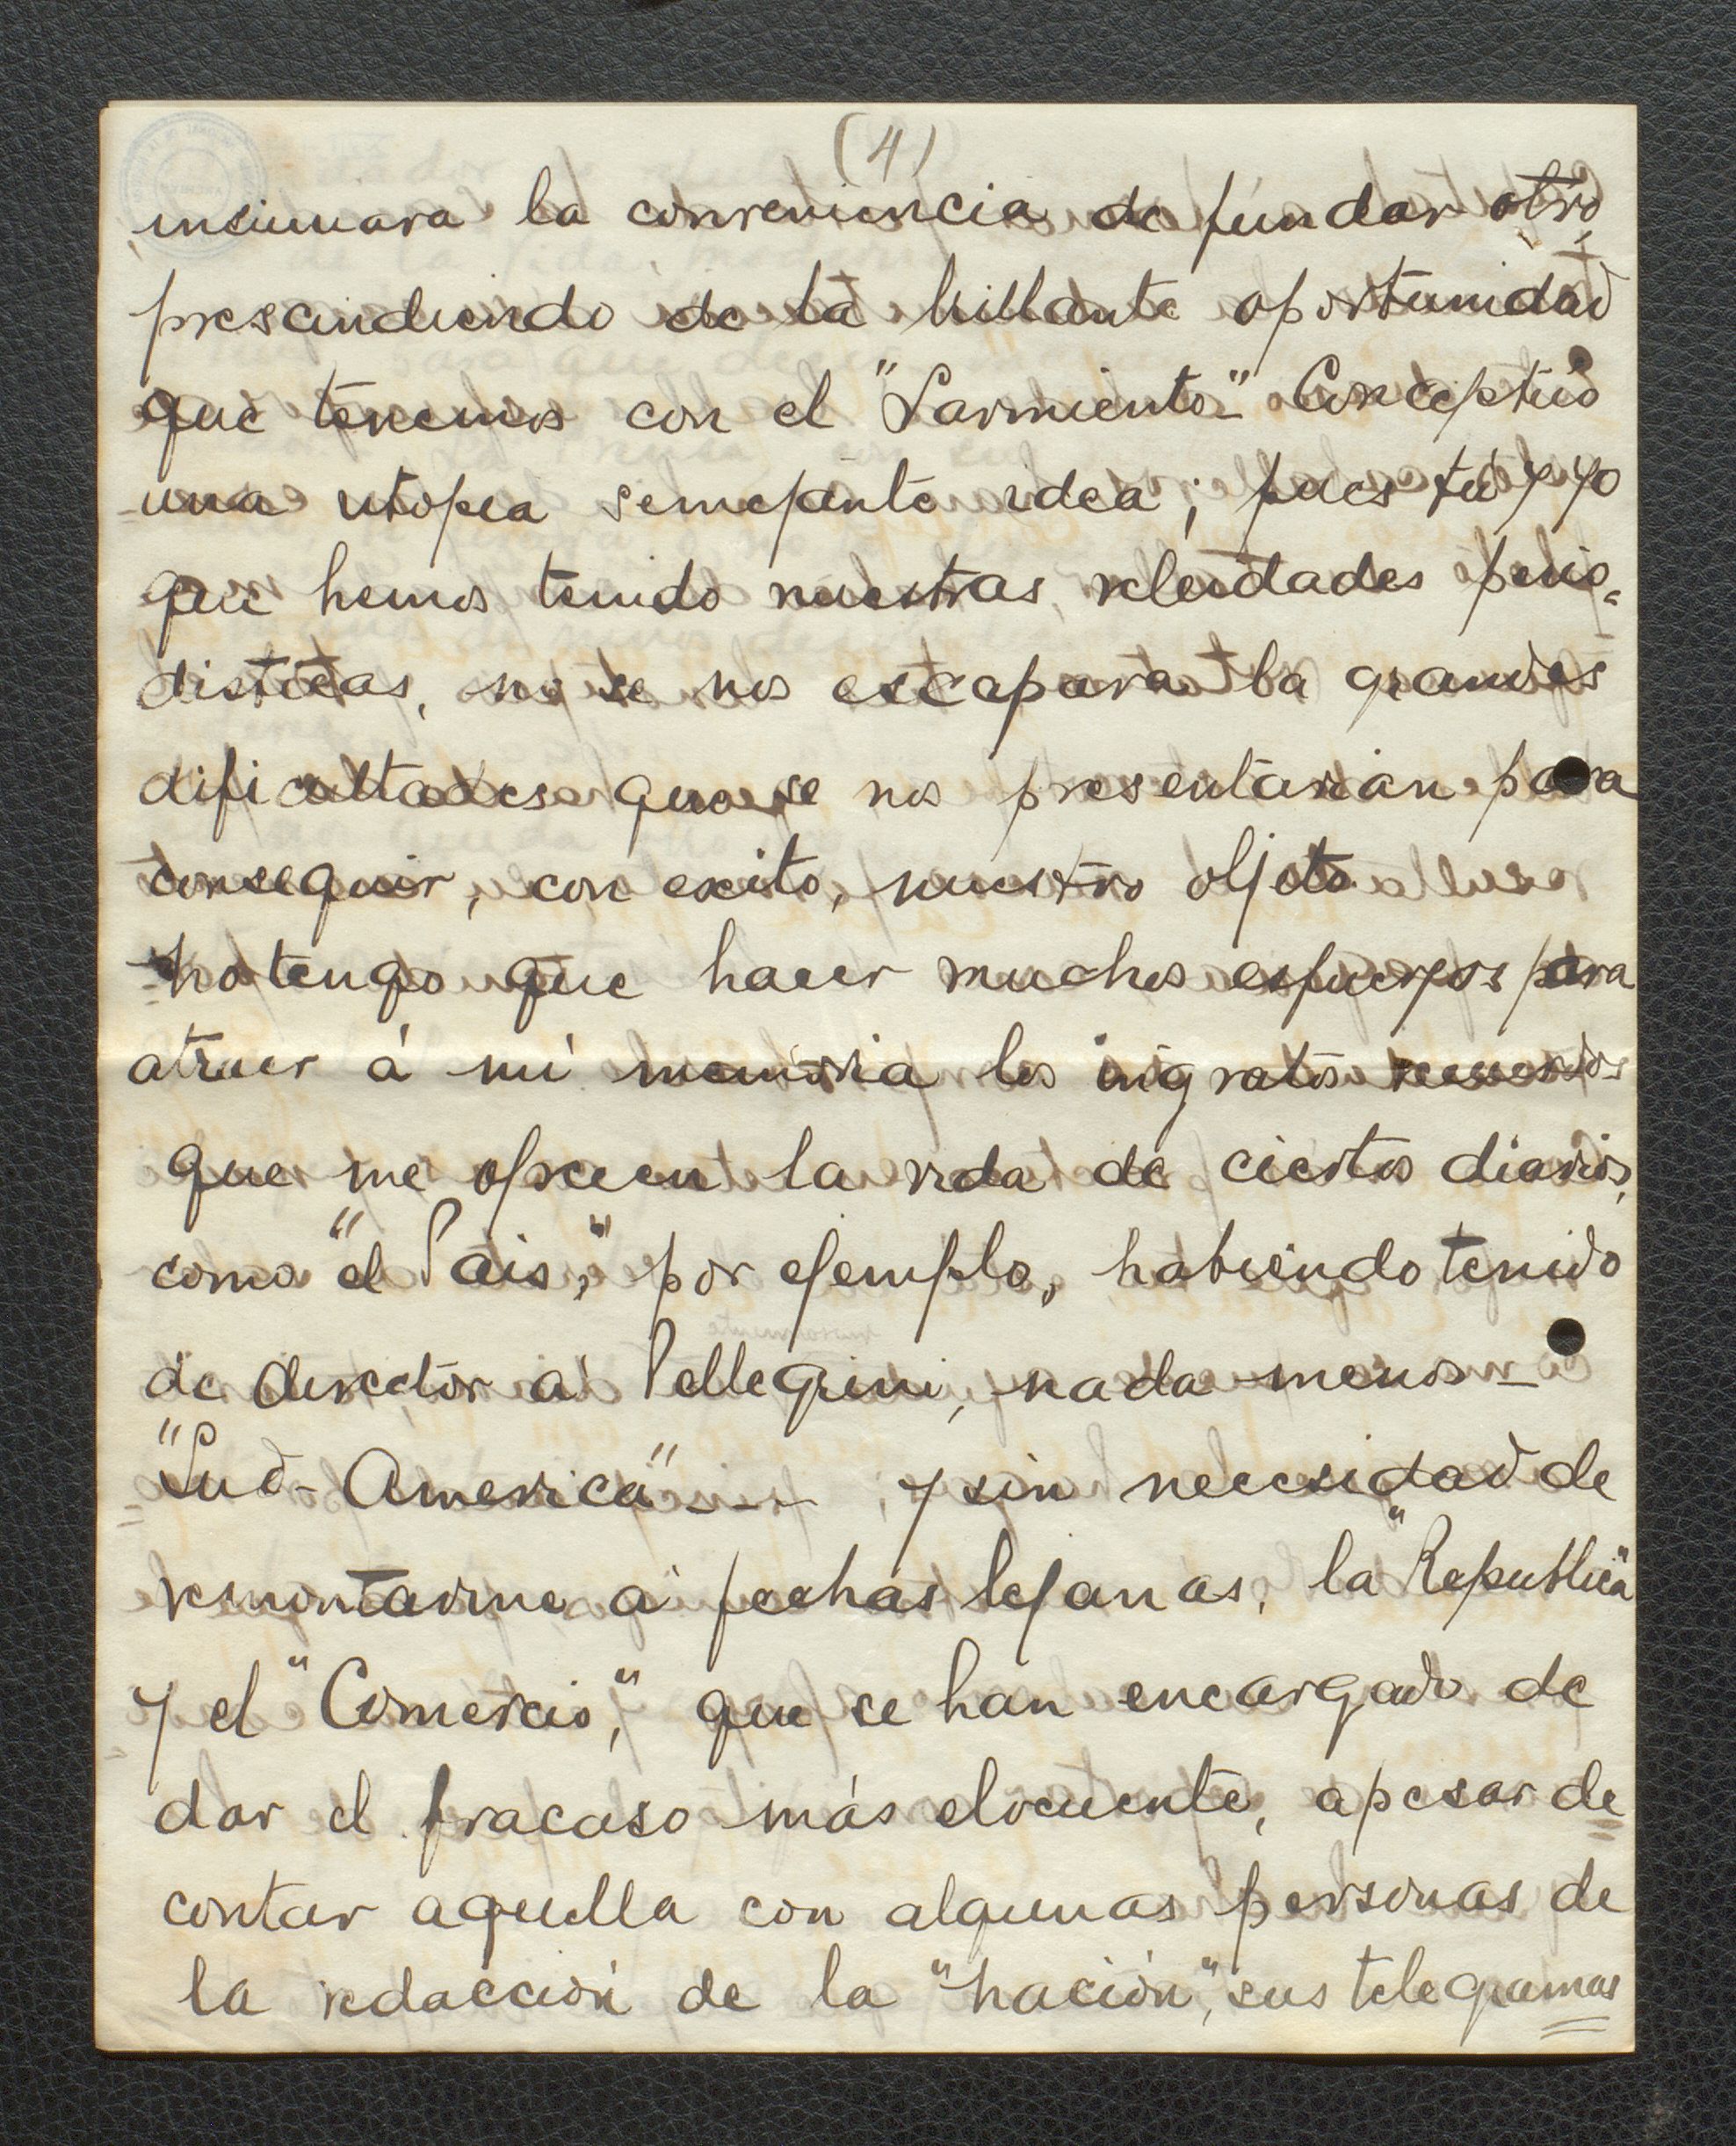 (4)
insinuara la conveniencia de fundar otro,
prescindiendo de la brillante oportunidad
que tenemos con el "Sarmiento" - Conceptúo
una utopia semejante idea; pues tú y yo
que hemos tenido nuestras veleidades perio-
disticas, no se nos escapara la grandes
dificultades que se nos presentarian para
conseguir, con exito, nuestro objeto
No tengo que hacer muchos esfuerzos para
atraer á mi memoria los ingratos recuerdos
que me ofrecen la vida de ciertos diarios,
como "el Pais," por ejemplo, habiendo tenido
de director á Pellegrini, nada menos -
"Sud-America" - - - y sin necesidad de
remontarme á fechas lejanas, la "Republica"
y el "Comercio," que se han encargado de
dar el fracaso más elocuente, apesar de
contar aquella con algunas personas de
la redacción de la "Nación", sus telegramas